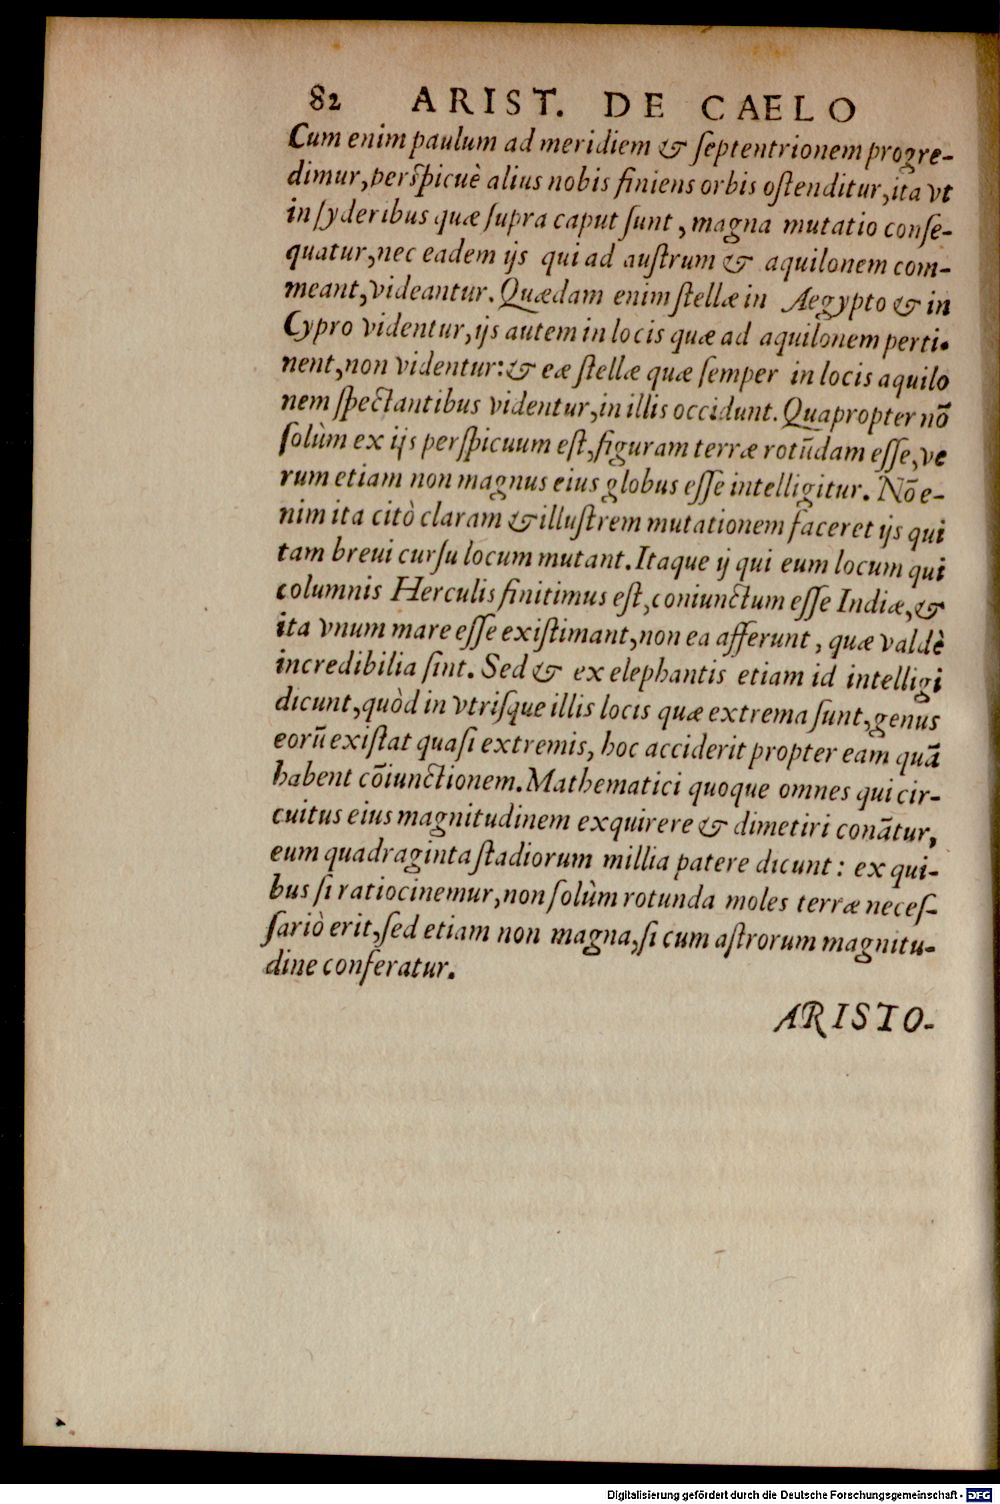 82 ARIST. DE CAELO
Cum enim paulum ad meridiem & ſeptentrionem progre-
dimur, perſpicuè alius nobis finiens orbis oſtenditur, ita vt
in ſyderibus quæ ſupra caput ſunt, magna mutatio conſe-
quatur, nec eadem ijs qui ad auſtrum & aquilonem com-
meant, videantur. Quædam enim ſtellæ in Aegypto & in
Cypro videntur, ijs autem in locis quæ ad aquilonem perti-
nent, non videntur: & eæ ſtellæ quæ ſemper in locis aquilo
nem ſpectantibus videntur, in illis occidunt. Quapropter nō
ſolùm ex ijs perſpicuum eſt, figuram terræ rotūdam eſſe, ve
rum etiam non magnus eius globus eſſe intelligitur. Nō e-
nim ita citò claram & illuſtrem mutationem faceret ijs qui
tam breui curſu locum mutant. Itaque ij qui eum locum qui
columnis Herculis finitimus eſt, coniunctum eſſe Indiæ, &
ita vnum mare eſſe exiſtimant, non ea afferunt, quæ valdè
incredibilia ſint. Sed & ex elephantis etiam id intelligi
dicunt, quòd in vtriſque illis locis quæ extrema ſunt, genus
eorū exiſtat quaſi extremis, hoc acciderit propter eam quā
habent cōiunctionem. Mathematici quoque omnes qui cir-
cuitus eius magnitudinem exquirere & dimetiri conātur,
eum quadraginta ſtadiorum millia patere dicunt: ex qui-
bus ſi ratiocinemur, non ſolùm rotunda moles terræ neceſ-
ſariò erit, ſed etiam non magna, ſi cum aſtrorum magnitu-
dine conferatur.
ARISTO-
Digitalisierung gefördert durch die Deutsche Forschungsgemeinschaft - DFG